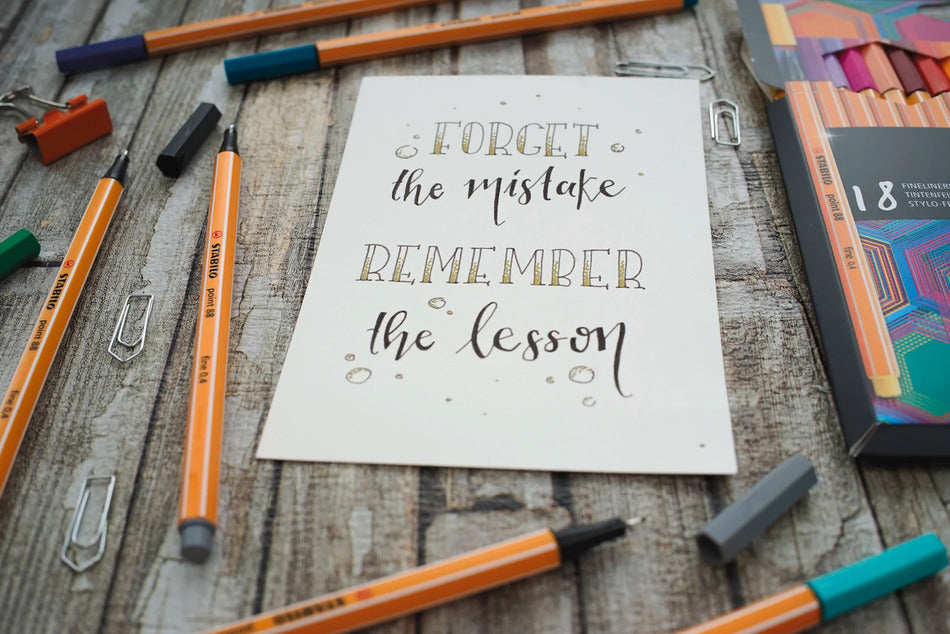 FORGET
the mistake
REMEMBER
the lesson
STABILO point 88 fine 0.4
STABILO point 88 fine 0.4
STABILO point 88 fine 0.4
18
FINELINER
TINTENFEI
STYLO-FE
STABILO